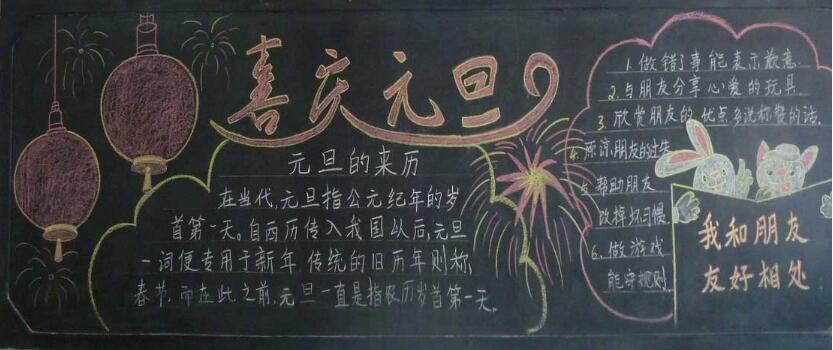 喜庆元旦
元旦的来历
在当代,元旦指公元纪年的岁
首第一天。自西历传入我国以后,元旦
一词便专用于新年,传统的旧历年则称
春节,而在此之前,元旦一直是指农历岁首第一天。
1.做错了事能表示歉意.
2.与朋友分享心爱的玩具.
3.欣赏朋友的优点多说称赞的话.
4.原谅朋友的过失
5.帮助朋友
改掉坏习惯
6.做游戏
能守规则
我和朋友
友好相处